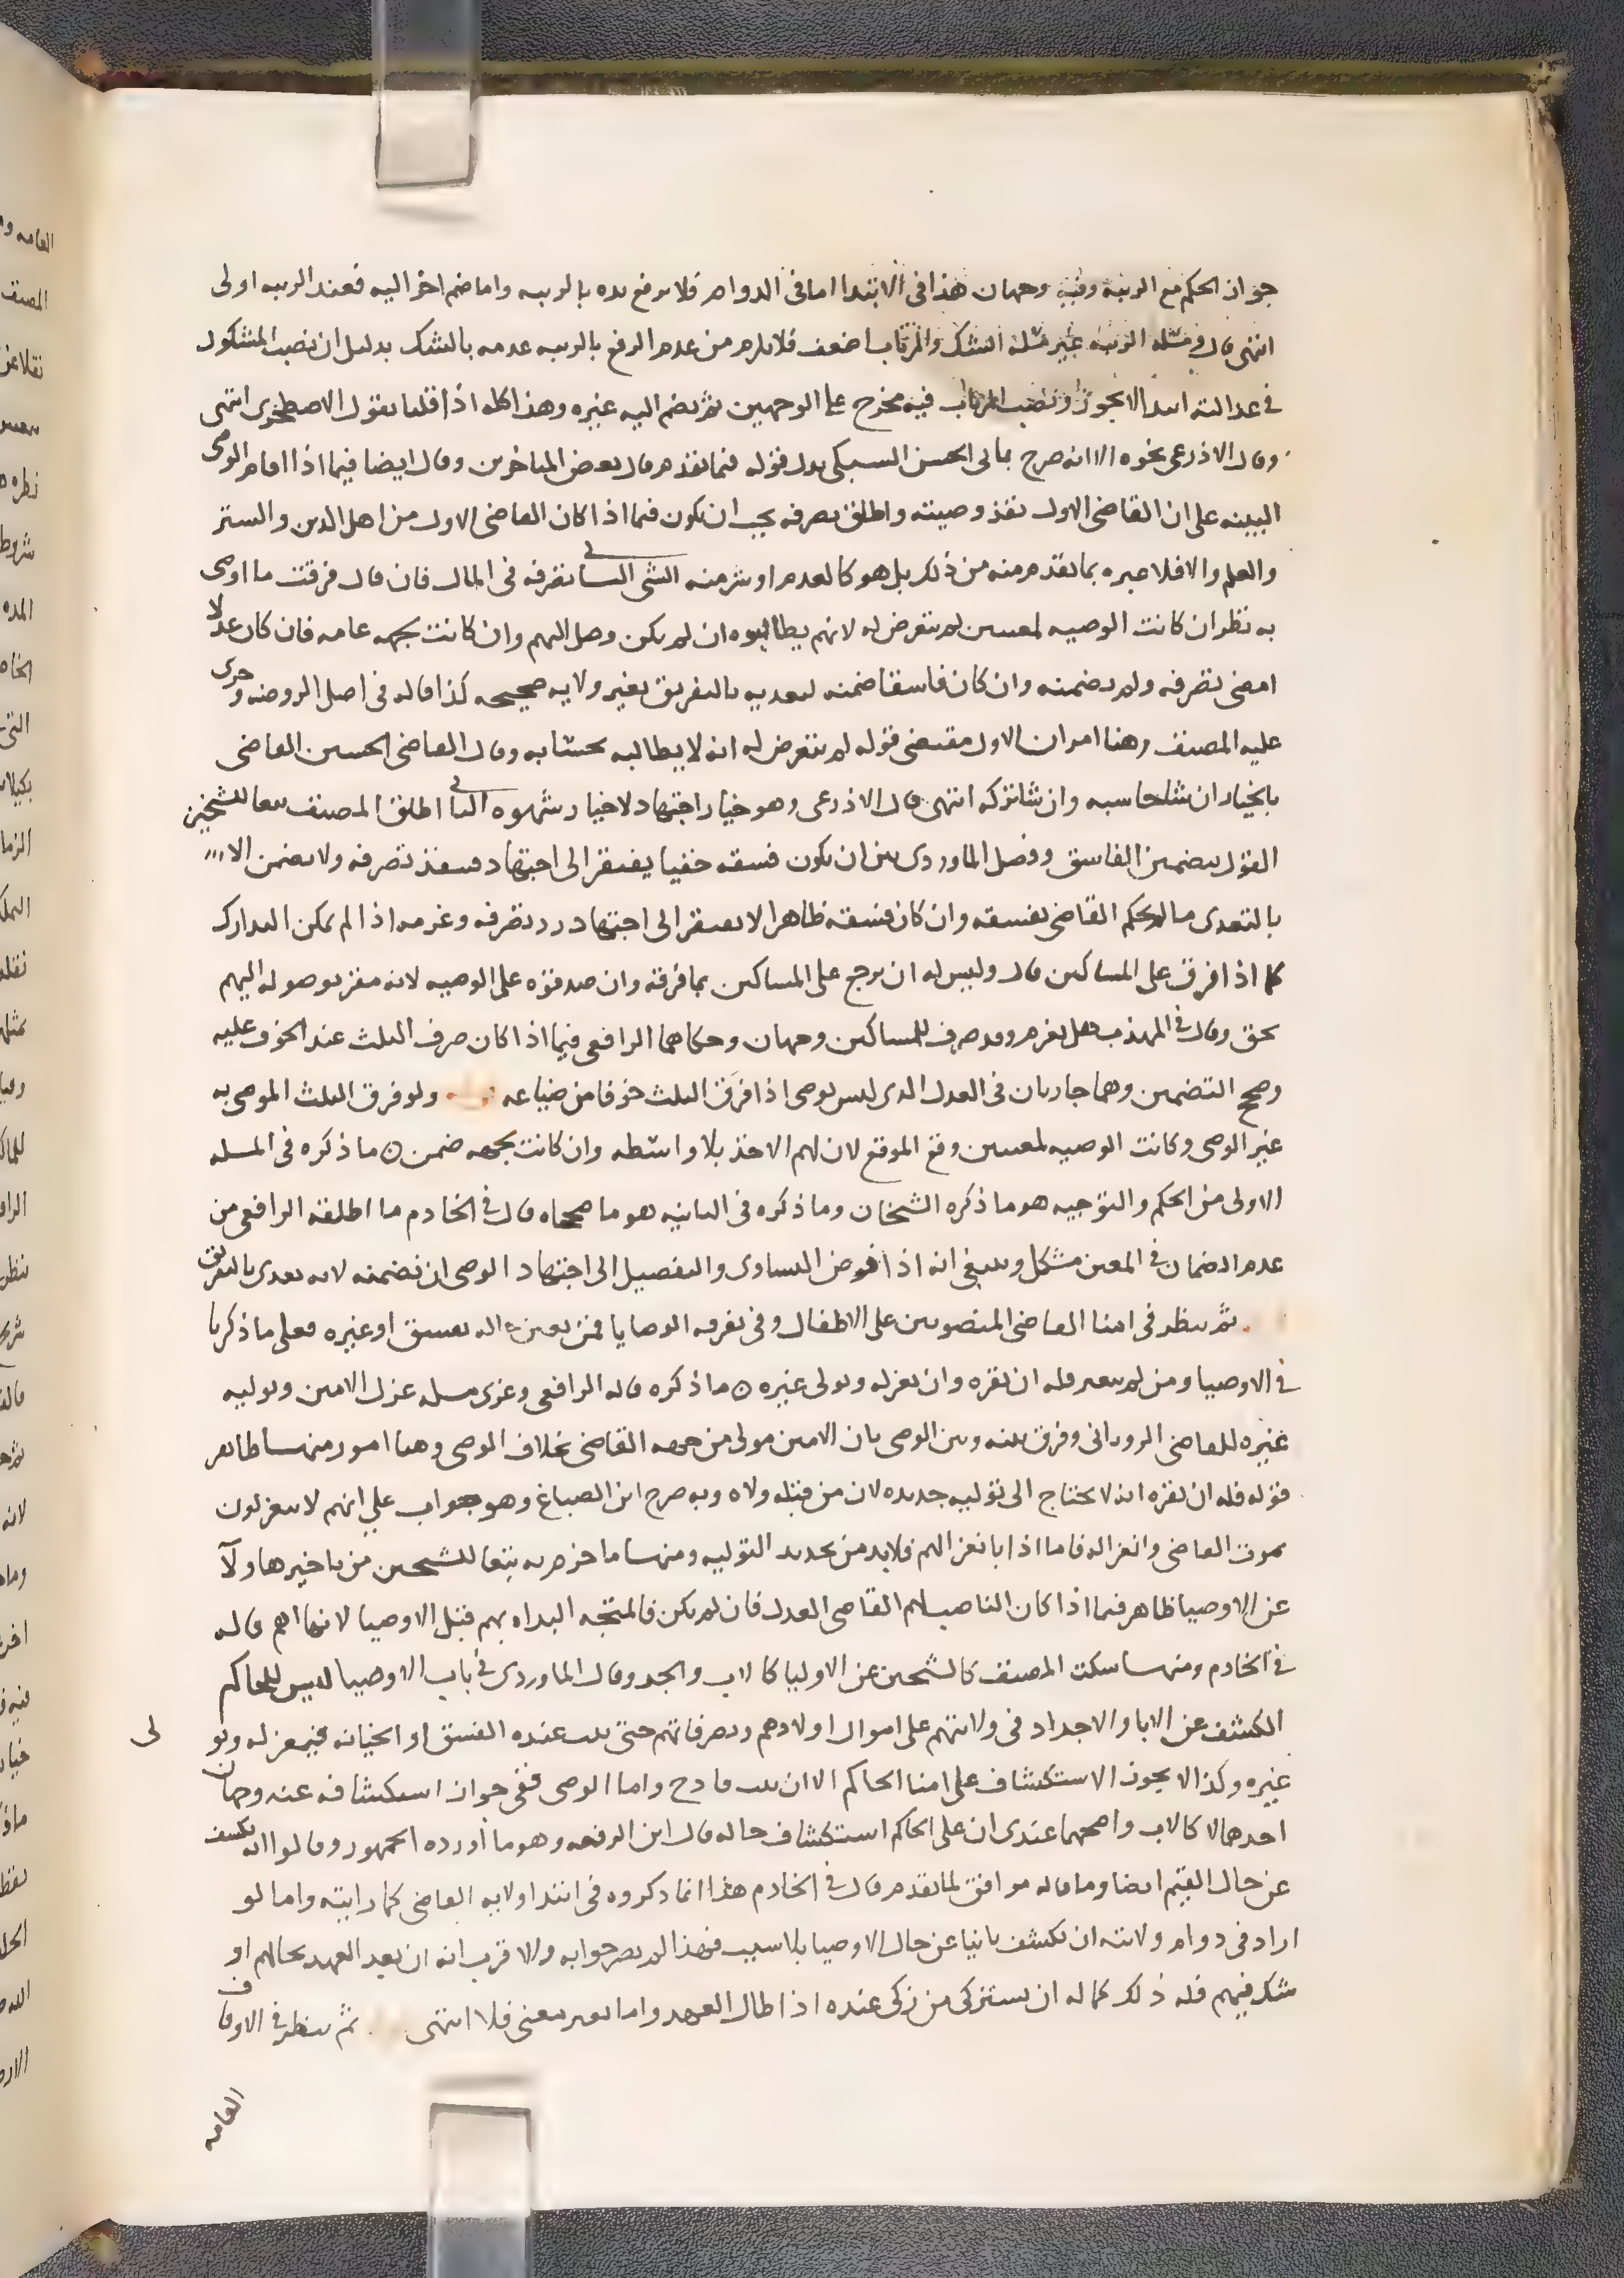 جواز الحكم مع الريبة وفيه وجهان هذا في الابتدا اما في الدوام فلا يرفع يده بالريبه واما ضم اخر اليه فعند الريبه اولى
انتهى قال في مثله الريبة غير مثله الشك والمرتاب اضعف فلا يلزم من عدم الرفع بالريبه عدمه بالشك بدليل ان نصب المشكوك
في عدالته ابتدا لا يجوز ونصب المرتاب فيه مخرج على الوجهين ثم يضم اليه غيره وهذا كله اذا قلنا بقول الاصطخرى انتهى
وقال الاذرعي نحوه الا انه صرح بابي الحسن السبكي بدل قوله فيما تقدم قال بعض المتاخرين وقال ايضا فيما اذا اقام الوصى
البينه على ان القاضي الاول نفذ وصيته واطلق تصرفه يجب ان يكون فيما اذا كان القاضي الاول من اهل الدين والستر
والعلم والا فلا عبره بما تقدم منه من ذلك بل هو كالعدم او شر منه الشي الثاني تفرقه في المال فان قال فرقت ما اوصى
به نظر ان كانت الوصيه لمعينين لم يتعرض له لانهم يطالبوه ان لم يكن وصل اليهم وان كانت بجهه عامه فان كان عدلا
امضى تصرفه ولم يضمنه وان كان فاسقا ضمنه لتعديه بالتفريق بغير ولايه صحيحه كذا قاله في اصل الروضه وجرى
عليه المصنف وهنا امران الاول مقتضى قوله لم يتعرض له انه لا يطالبه بحسابه وقال القاضي الحسين القاضي
بالخيار ان شا حاسبه وان شا تركه انتهى قال الاذرعي وهو خيار اجتهاد لا خيار شهوه الثاني اطلق المصنف تبعا للشيخين
القول بتضمين الفاسق وفصل الماوردي بين ان يكون فسقه خفيا يفتقر الى اجتهاد فينفذ تصرفه ولا يضمن الا
بالتعدى ما لم يحكم القاضي بفسقه وان كان فسقه ظاهرا لا يفتقر الى اجتهاد رد تصرفه وغرمه اذا لم يمكن التدارك
كما اذا فرق على المساكين قال وليس له ان يرجع على المساكين بما فرقه وان صدقوه على الوصيه لانه مقر بوصوله اليهم
بحق وقال في المهذب هل يغرم وقد صرف للمساكين وجهان وحكاهما الرافعي فيما اذا كان صرف الثلث عند الخوف عليه
وصحح التضمين وهما جاريان في العدل الذي ليس بوصى اذا فرق الثلث خوفا من ضياعه ولو فرق الثلث الموصى به
غير الوصى وكانت الوصيه لمعينين وقع الموقع لان لهم الاخذ بلا واسطه وان كانت بجهه ضمن ه ما ذكره في المسله
الاولى من الحكم والتوجيه هو ما ذكره الشيخان وما ذكره في الثانيه هو ما صححاه قال في الخادم ما اطلقه الرافعي من
عدم الضمان في المعين مشكل وينبغي انه اذا فوض التساوى والتفصيل الى اجتهاد الوصى ان يضمنه لانه تعدى بالتفريق
ثم ينظر في امنا القاضي المنصوبين على الاطفال وفي تفرقه الوصايا فمن تغير حاله بفسق او غيره فعلى ما ذكرنا
في الاوصيا ومن لم يتغير فله ان يقره وان يعزله ويولى غيره ه ما ذكره قاله الرافعي وعزى مسله عزل الامين وتوليه
غيره للقاضي الروياني وفرق بينه وبين الوصى بان الامين مولى من جهه القاضي بخلاف الوصى وهنا امور منها ظاهر
قوله فله ان يقره انه لا يحتاج الى توليه جديده لان من قبله ولاه وبه صرح ابن الصباغ وهو جواب على انهم لا ينعزلون
بموت القاضي وانعزاله فاما اذا بانعزالهم فلا بد من تجديد التوليه ومنها ما جزم به تبعا للشيخين من تاخيرها ولا
عن الاوصيا ظاهر فيما اذا كان الناصب لهم القاضي العدل فان لم يكن فالمتجه البداه بهم قبل الاوصيا لانها اهم قاله
في الخادم ومنها سكت المصنف كالشيخين عن الاوليا كالاب والجد وقال الماوردي في باب الاوصيا ليس للحاكم
الكشف عن الابا والاجداد في ولايتهم على اموال اولادهم وتصرفاتهم حتى يثبت عنده الفسق او الخيانه فيعزله ويولى
غيره وكذا لا يجوز الاستكشاف على امنا الحاكم الا ان يثبت قادح واما الوصى ففي جواز استكشافه عنه وجهان
احدهما لا كالاب واصحهما عندى ان على الحاكم استكشاف حاله قال ابن الرفعه وهو ما اورده الجمهور وقالوا انه يكشف
عن حال القيم ايضا وما قاله موافق لما تقدم قال في الخادم هذا انما ذكروه في ابتدا ولايه القاضي كما رايته واما لو
اراد في دوام ولايته ان يكشف ثانيا عن حال الاوصيا بلا سبب فهذا لم يصرحوا به والاقرب انه ان بعد العهد بحالهم او
شك فيهم فله ذلك كما له ان يستزكى من زكى عنده اذا طال العهد واما بغير معنى فلا انتهى ثم ينظر في الاوقاف
العامه